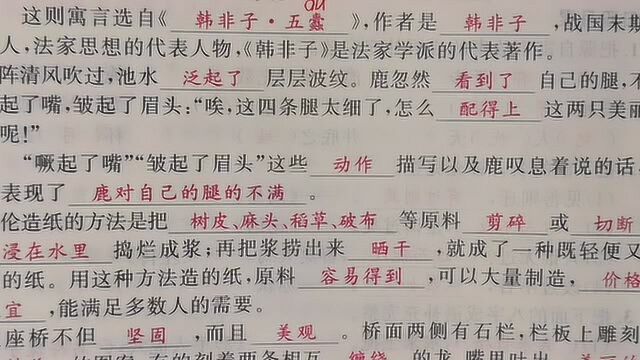 ou
这则寓言选自《韩非子·五蠹》,作者是韩非子,战国末期
人,法家思想的代表人物,《韩非子》是法家学派的代表著作。
阵清风吹过,池水泛起了层层波纹。鹿忽然看到了自己的腿,不
起了嘴,皱起了眉头:“唉,这四条腿太细了,怎么配得上这两只美丽
呢!”
“噘起了嘴”“皱起了眉头”这些动作描写以及鹿叹息着说的话,
表现了鹿对自己的腿的不满。
伦造纸的方法是把树皮、麻头、稻草、破布等原料剪碎或切断
浸在水里捣烂成浆;再把浆捞出来晒干,就成了一种既轻便又
的纸。用这种方法造的纸,原料容易得到,可以大量制造,价格
宜,能满足多数人的需要。
座桥不但坚固,而且美观。桥面两侧有石栏,栏板上雕刻
的图案:有的刻着两条相互缠绕的龙,嘴里吐出